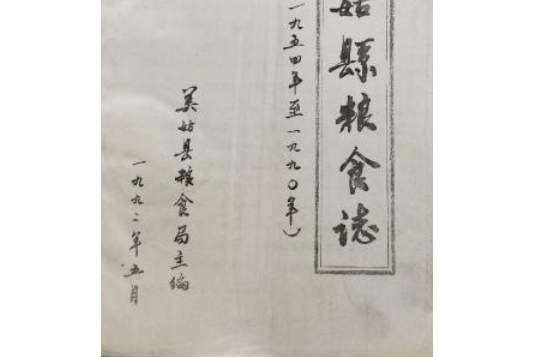 姑縣粮食誌
一九五四年至一九九〇年)
美姑县粮食局主编
一九九二年五月